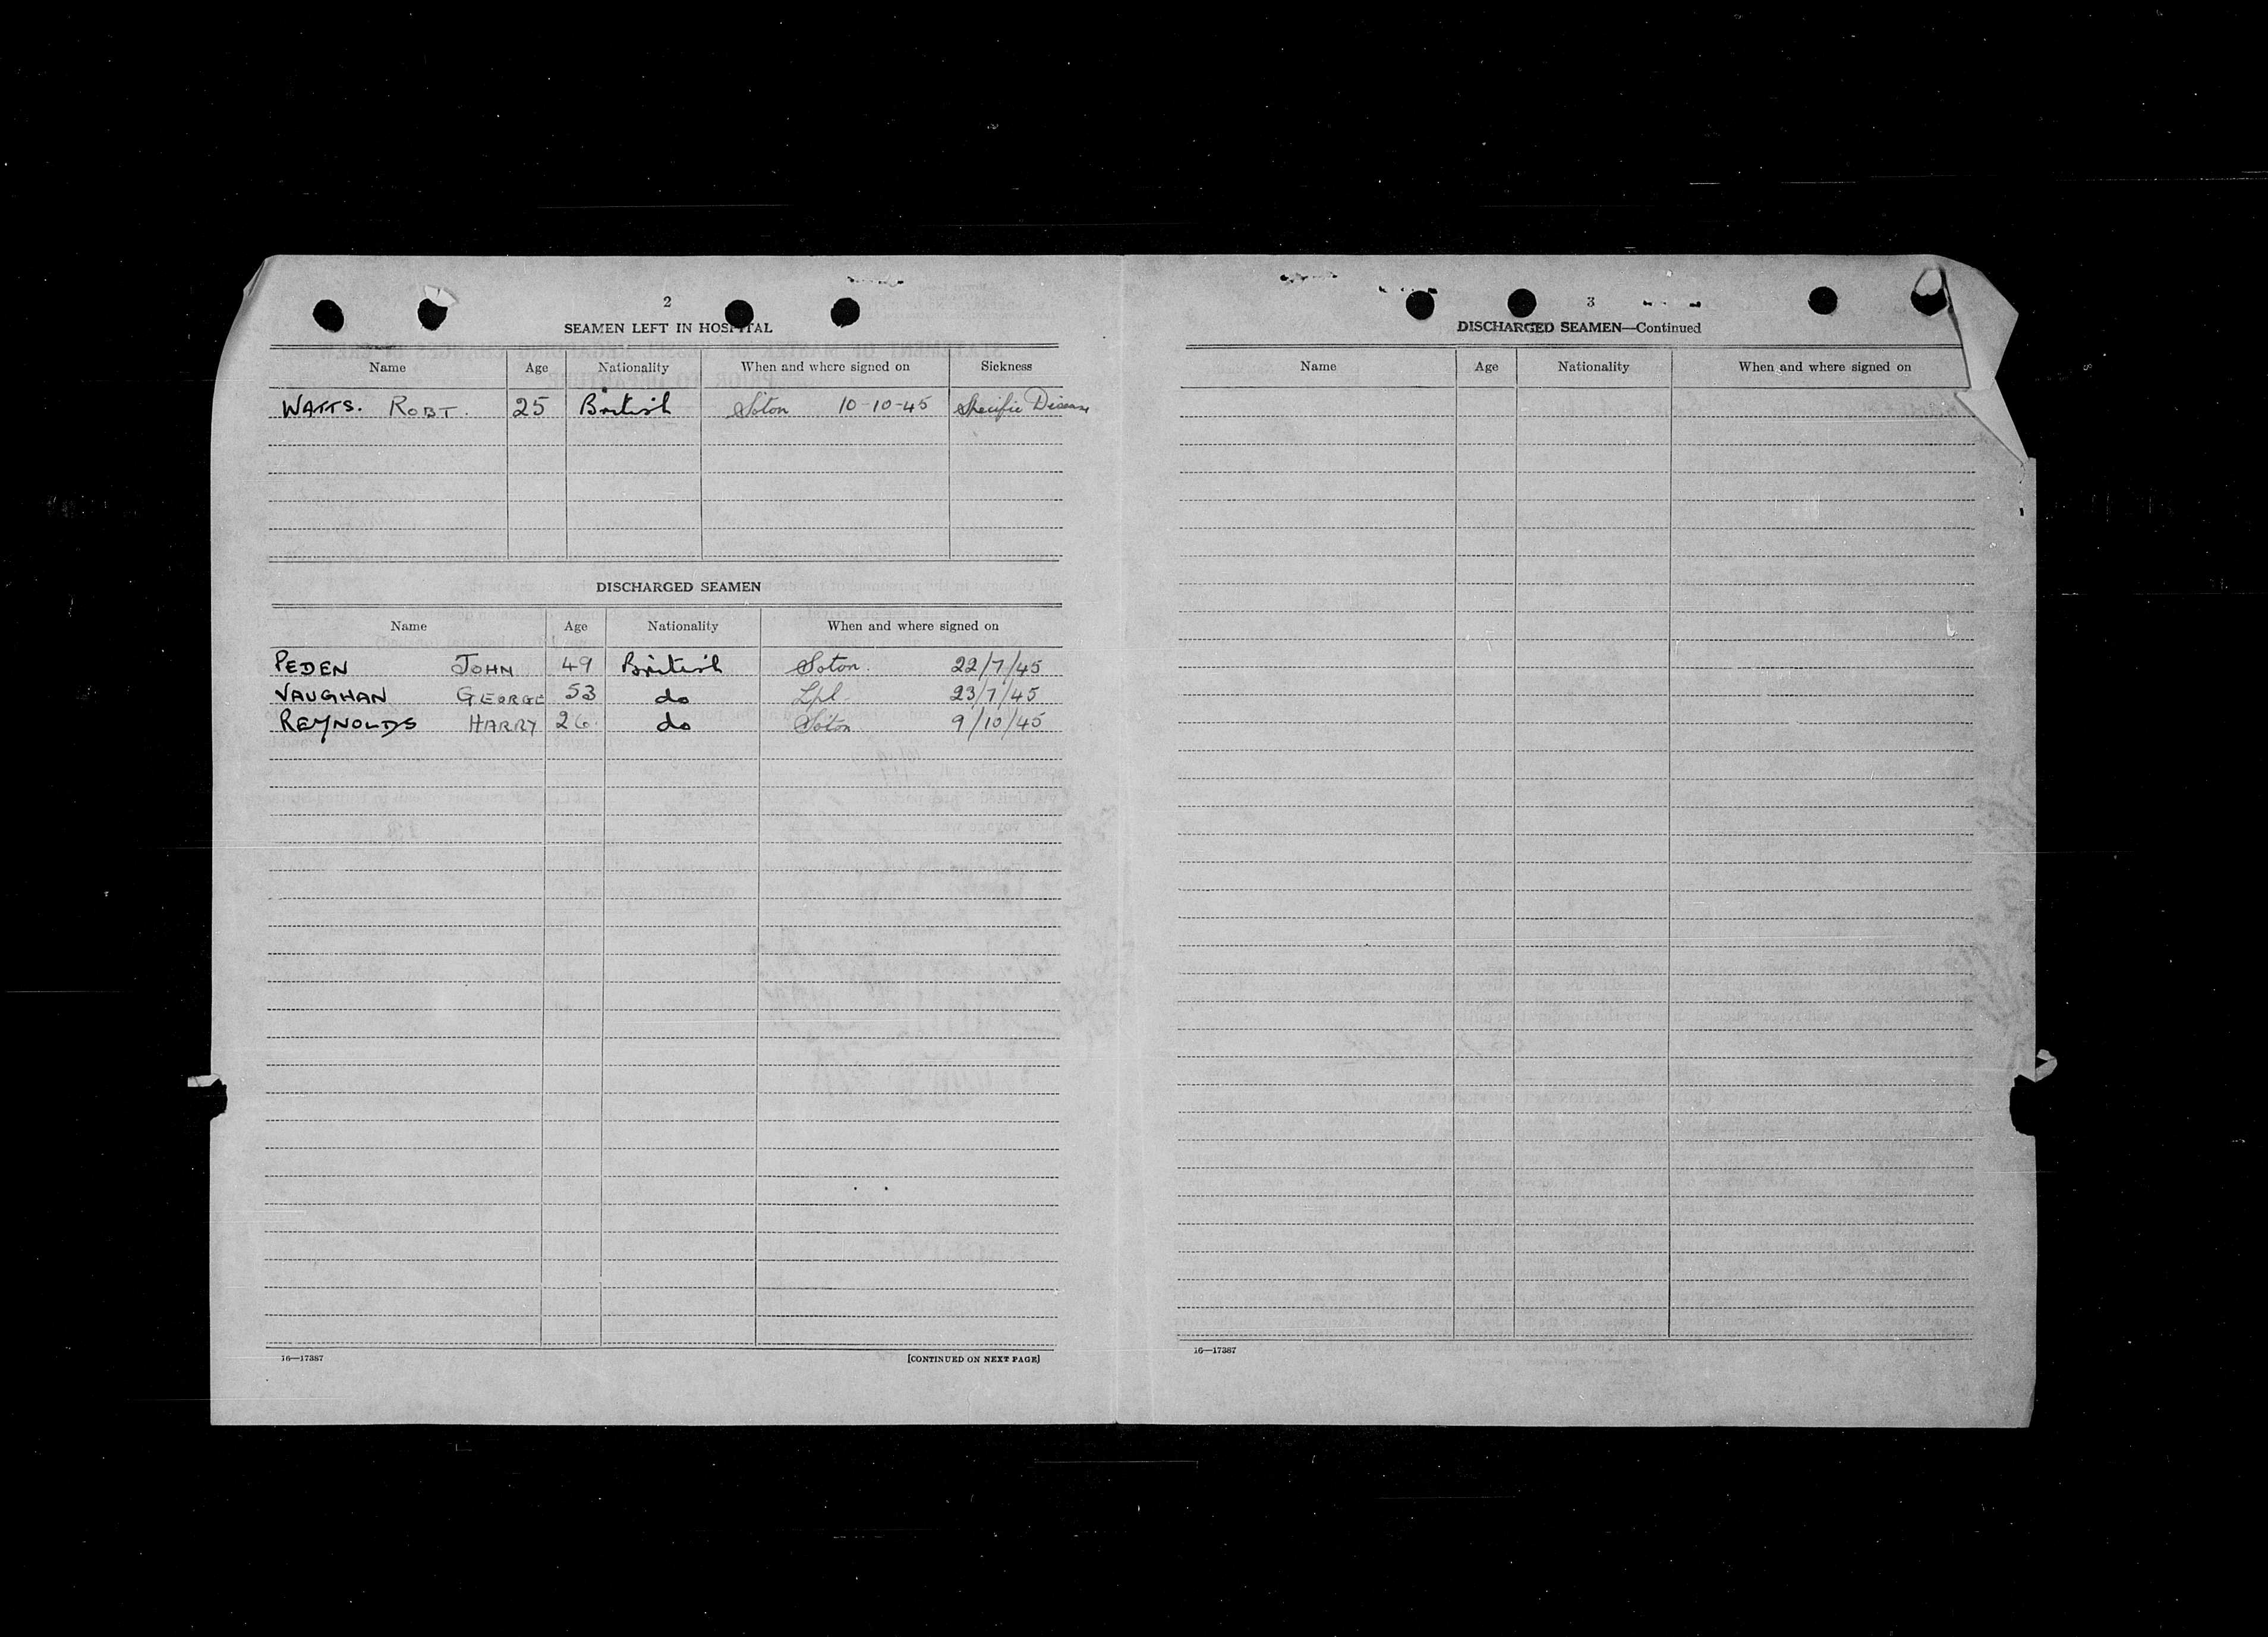 2
SEAMEN LEFT IN HOSPITAL
Name Age Nationality When and where signed on Sickness
WATTS. ROBT. 25 British Soton 10-10-45 Specific Disease
DISCHARGED SEAMEN
Name Age Nationality When and where signed on
PEDEN JOHN 49 British Soton. 22/7/45
VAUGHAN GEORGE 53 do Lpl. 23/7/45
REYNOLDS HARRY 26 do Soton 9/10/45
16—17387 [CONTINUED ON NEXT PAGE]
3
DISCHARGED SEAMEN—Continued
Name Age Nationality When and where signed on
16—17387